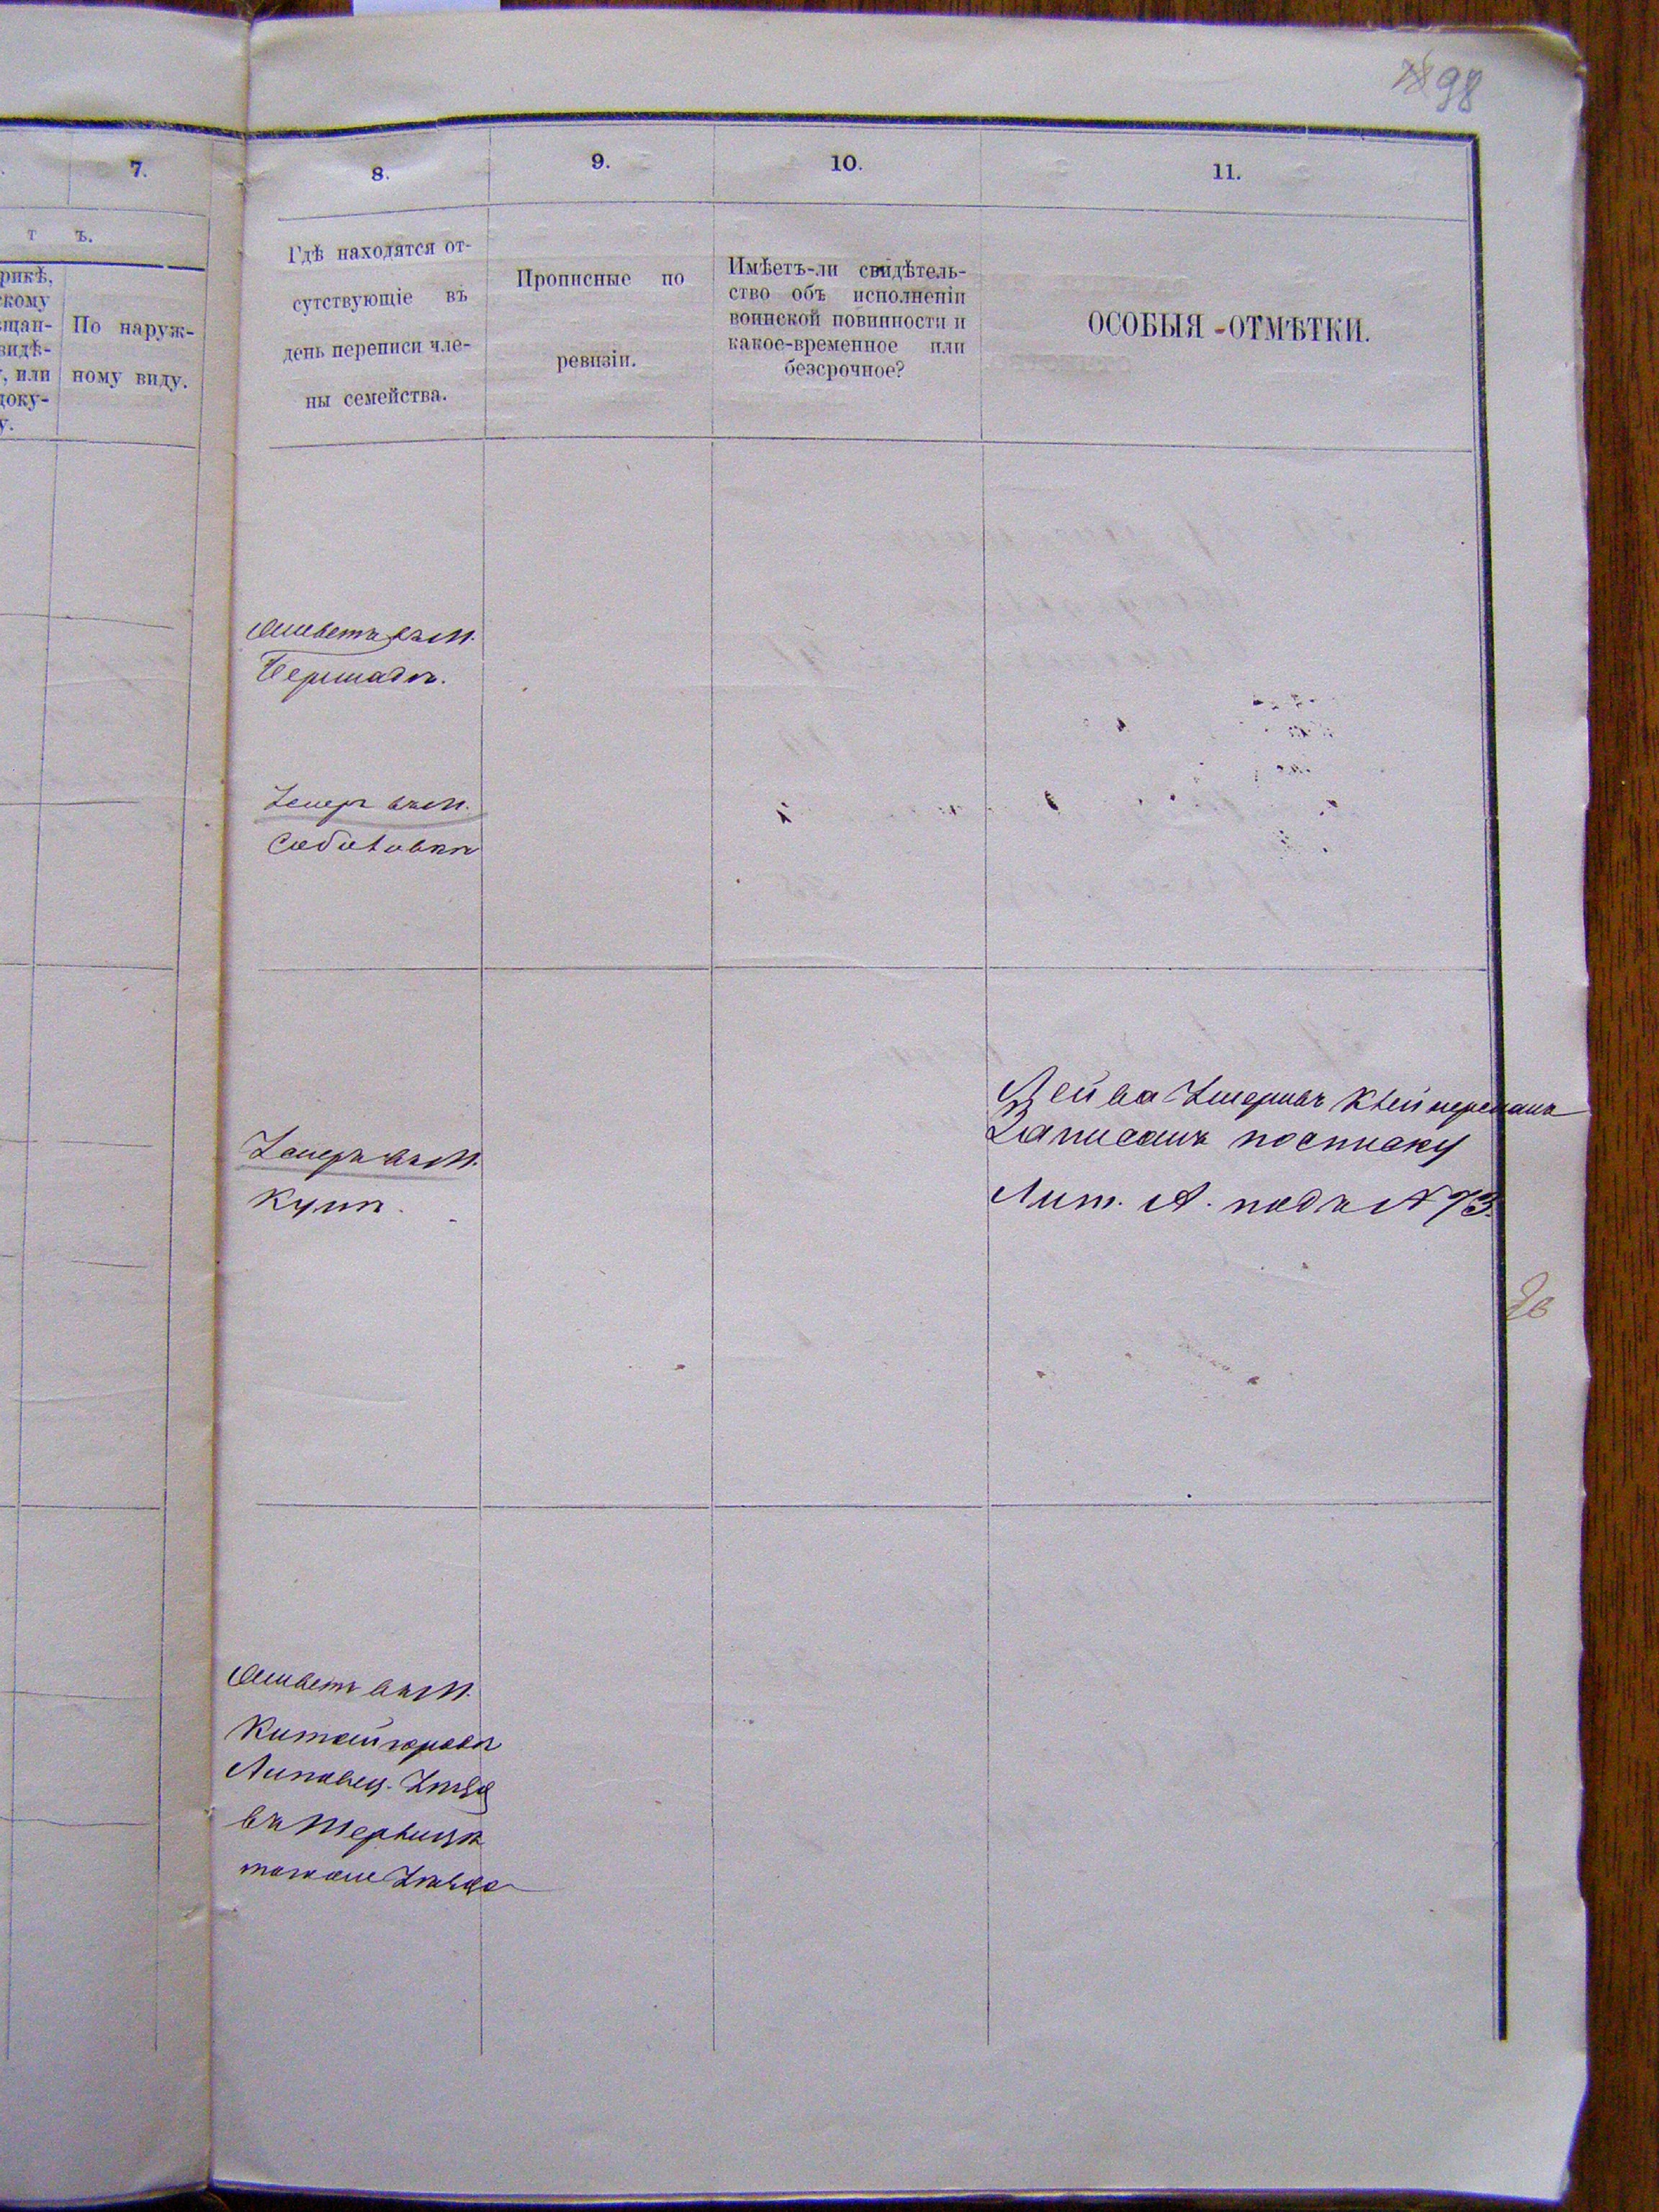 98
7.
8.
9.
10.
11.
т ъ.
рикѣ,
скому
щан-
видѣ-
, или
доку-
у.
По наруж-
ному виду.
Гдѣ находятся от-
сутствующіе въ
день переписи чле-
ны семейства.
Прописные по
ревизіи.
Имѣетъ-ли свидѣтель-
ство объ исполненіи
воинской повинности и
какое-временное или
безсрочное?
ОСОБЫЯ ОТМѢТКИ.
живетъ въ м.
Бершадѣ.
Умеръ въ м.
Соболовкѣ
Лейба Умершъ Клейнерманъ
Записанъ по списку
Лит. А. подъ N 73.
Умеръ въ м.
Куни.
живетъ въ м.
Китайгородѣ
Липовец. Уѣзд
въ
тогоже Уѣзда